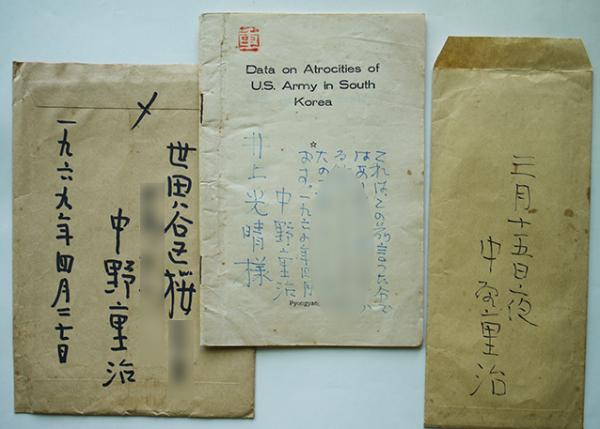 〆
世田谷区桜
中野重治
一九六九年四月二七日
重
Data on Atrocities of
U.S. Army in South
Korea
☆
これはこの前言った分で
はあ
る
たの
ます。一九六
中野重治
井上光晴様
Pyongyan
三月十五日夜
中野重治